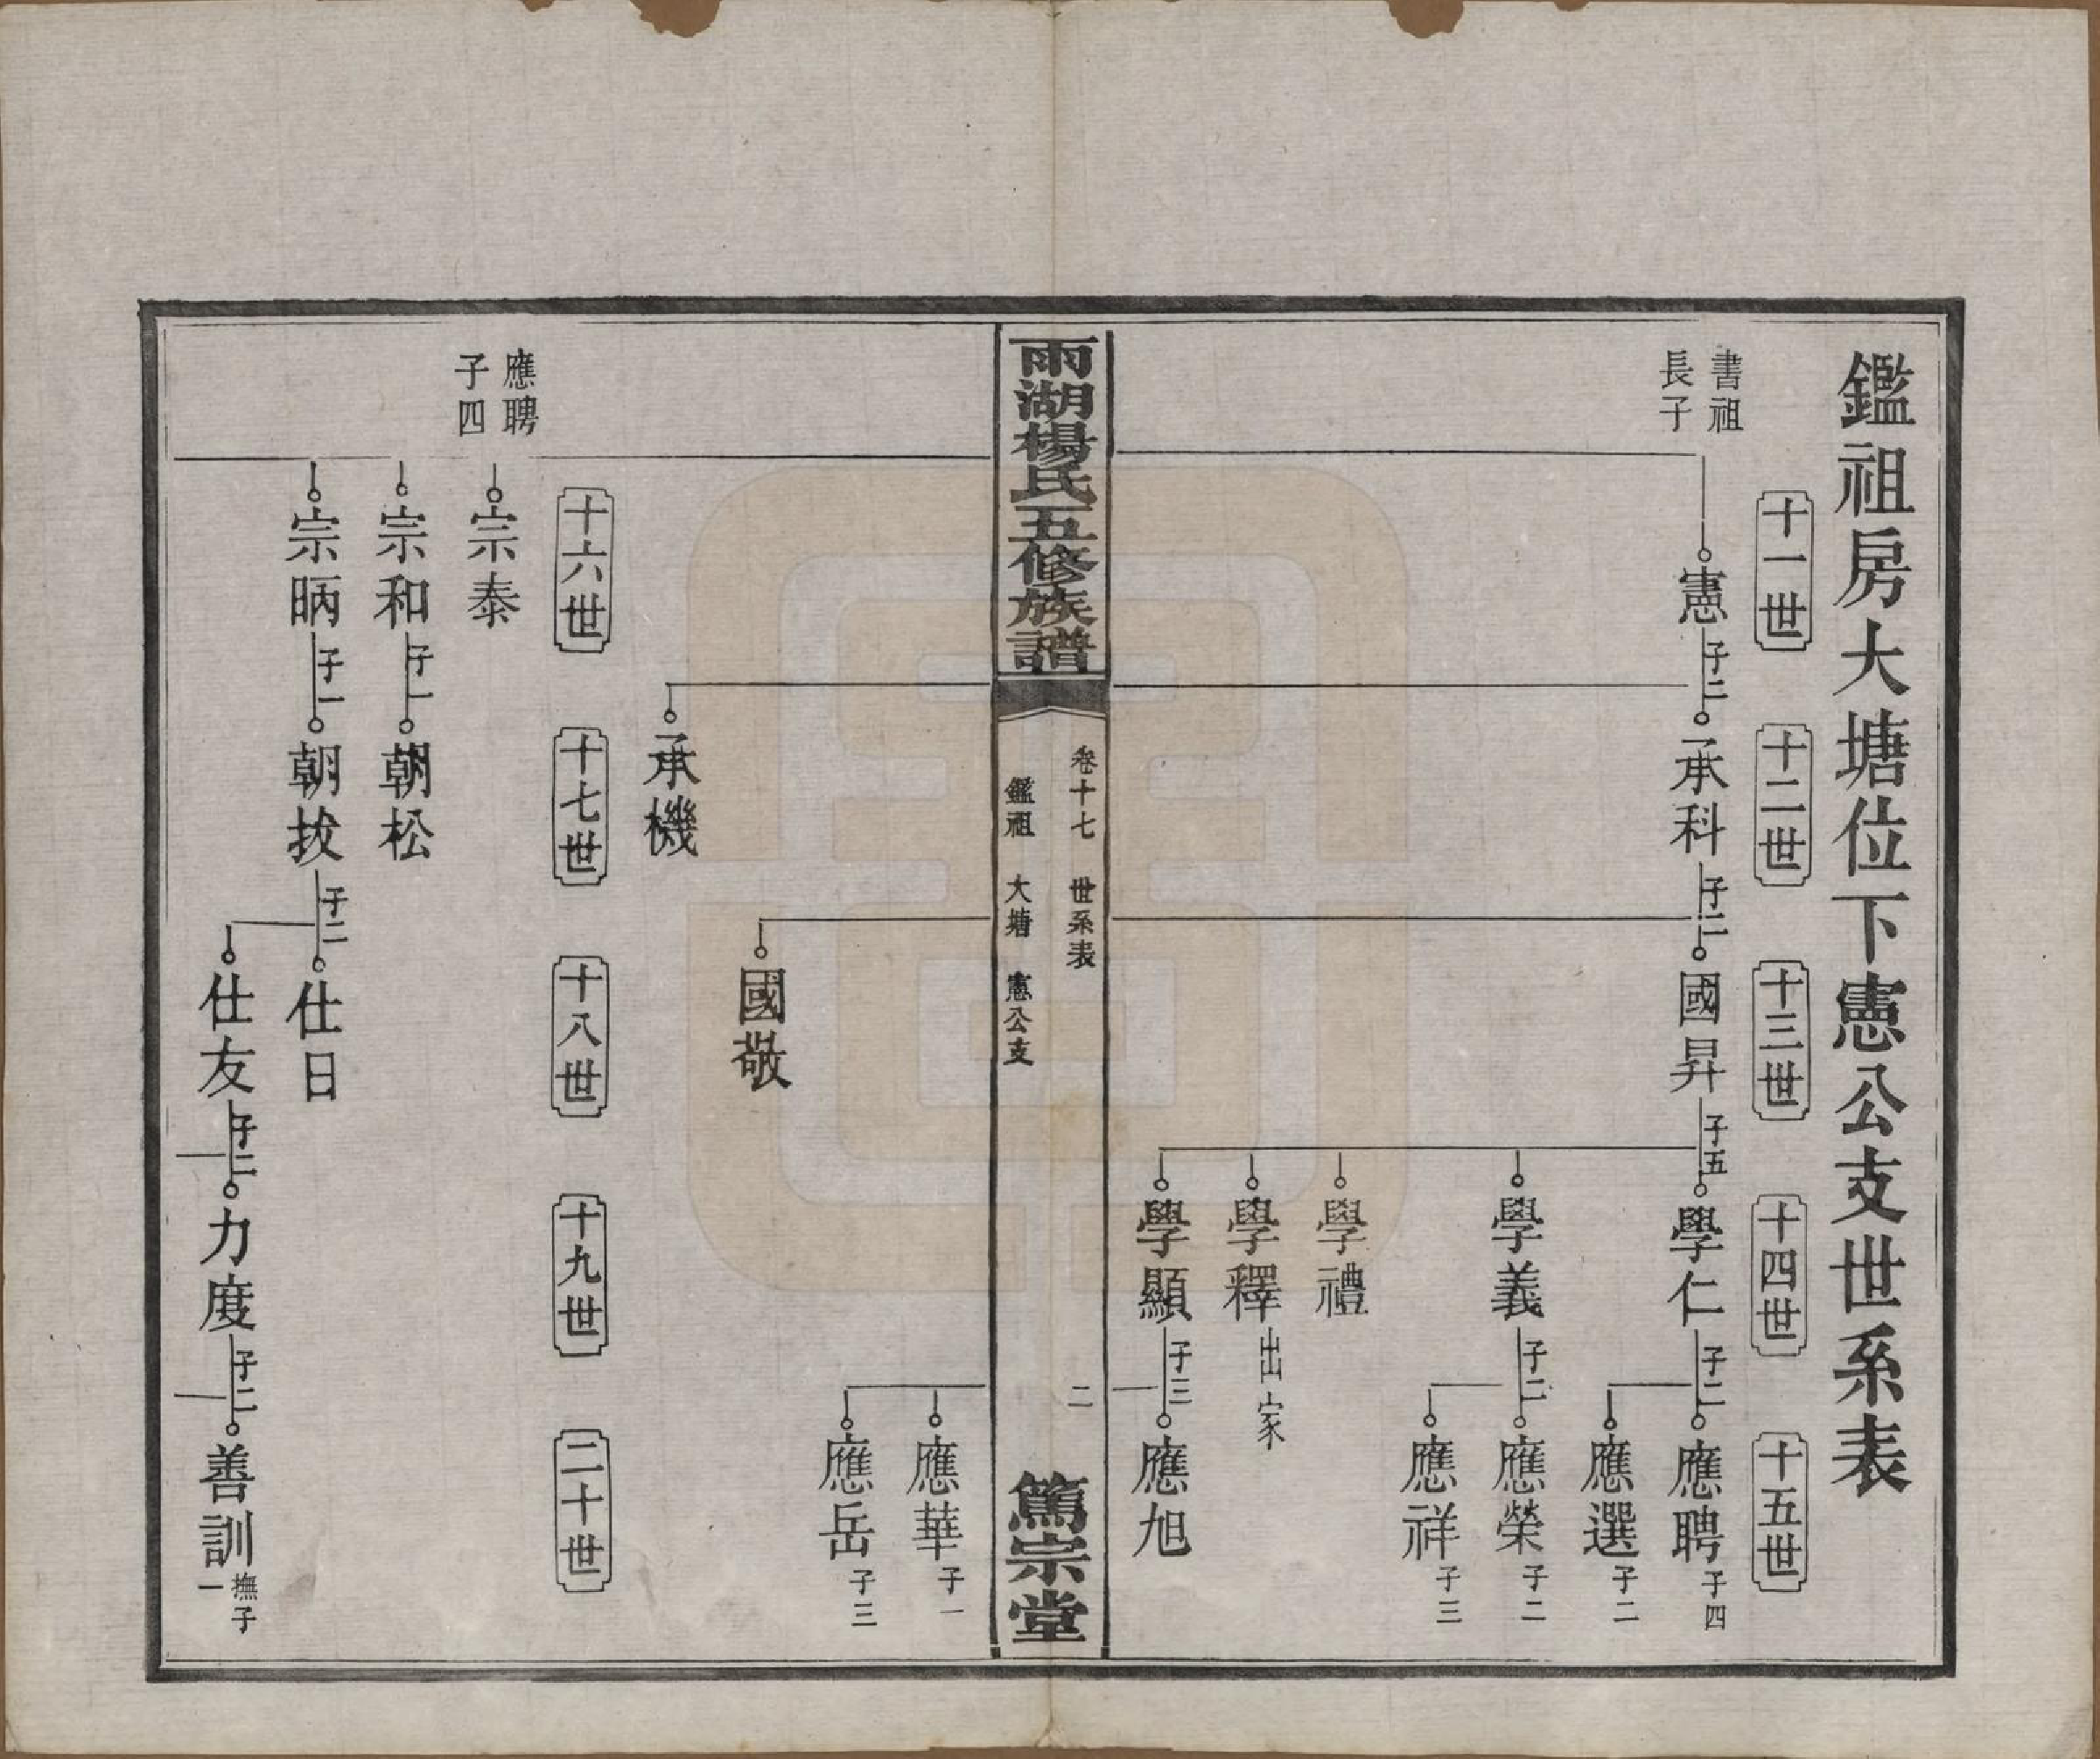 鑑祖房大塘位下憲公支世系表
十一世
十二世
十三世
十四世
十五世
書祖
長子
憲子二
承科子二
國昇子五
學仁子二
應聘子四
應選子二
學義子二
應榮子二
應祥子三
學禮
學釋出家
學顯子三
應旭
雨湖楊氏五修族譜
卷十七 世系表
鑑祖 大塘 憲公支
二
篤宗堂
應華子一
應岳子三
國敬
承機
十六世
十七世
十八世
十九世
二十世
應聘
子四
宗泰
宗和子一
朝松
宗昞子一
朝拔子二
仕日
仕友子二
力度子二
善訓撫子一